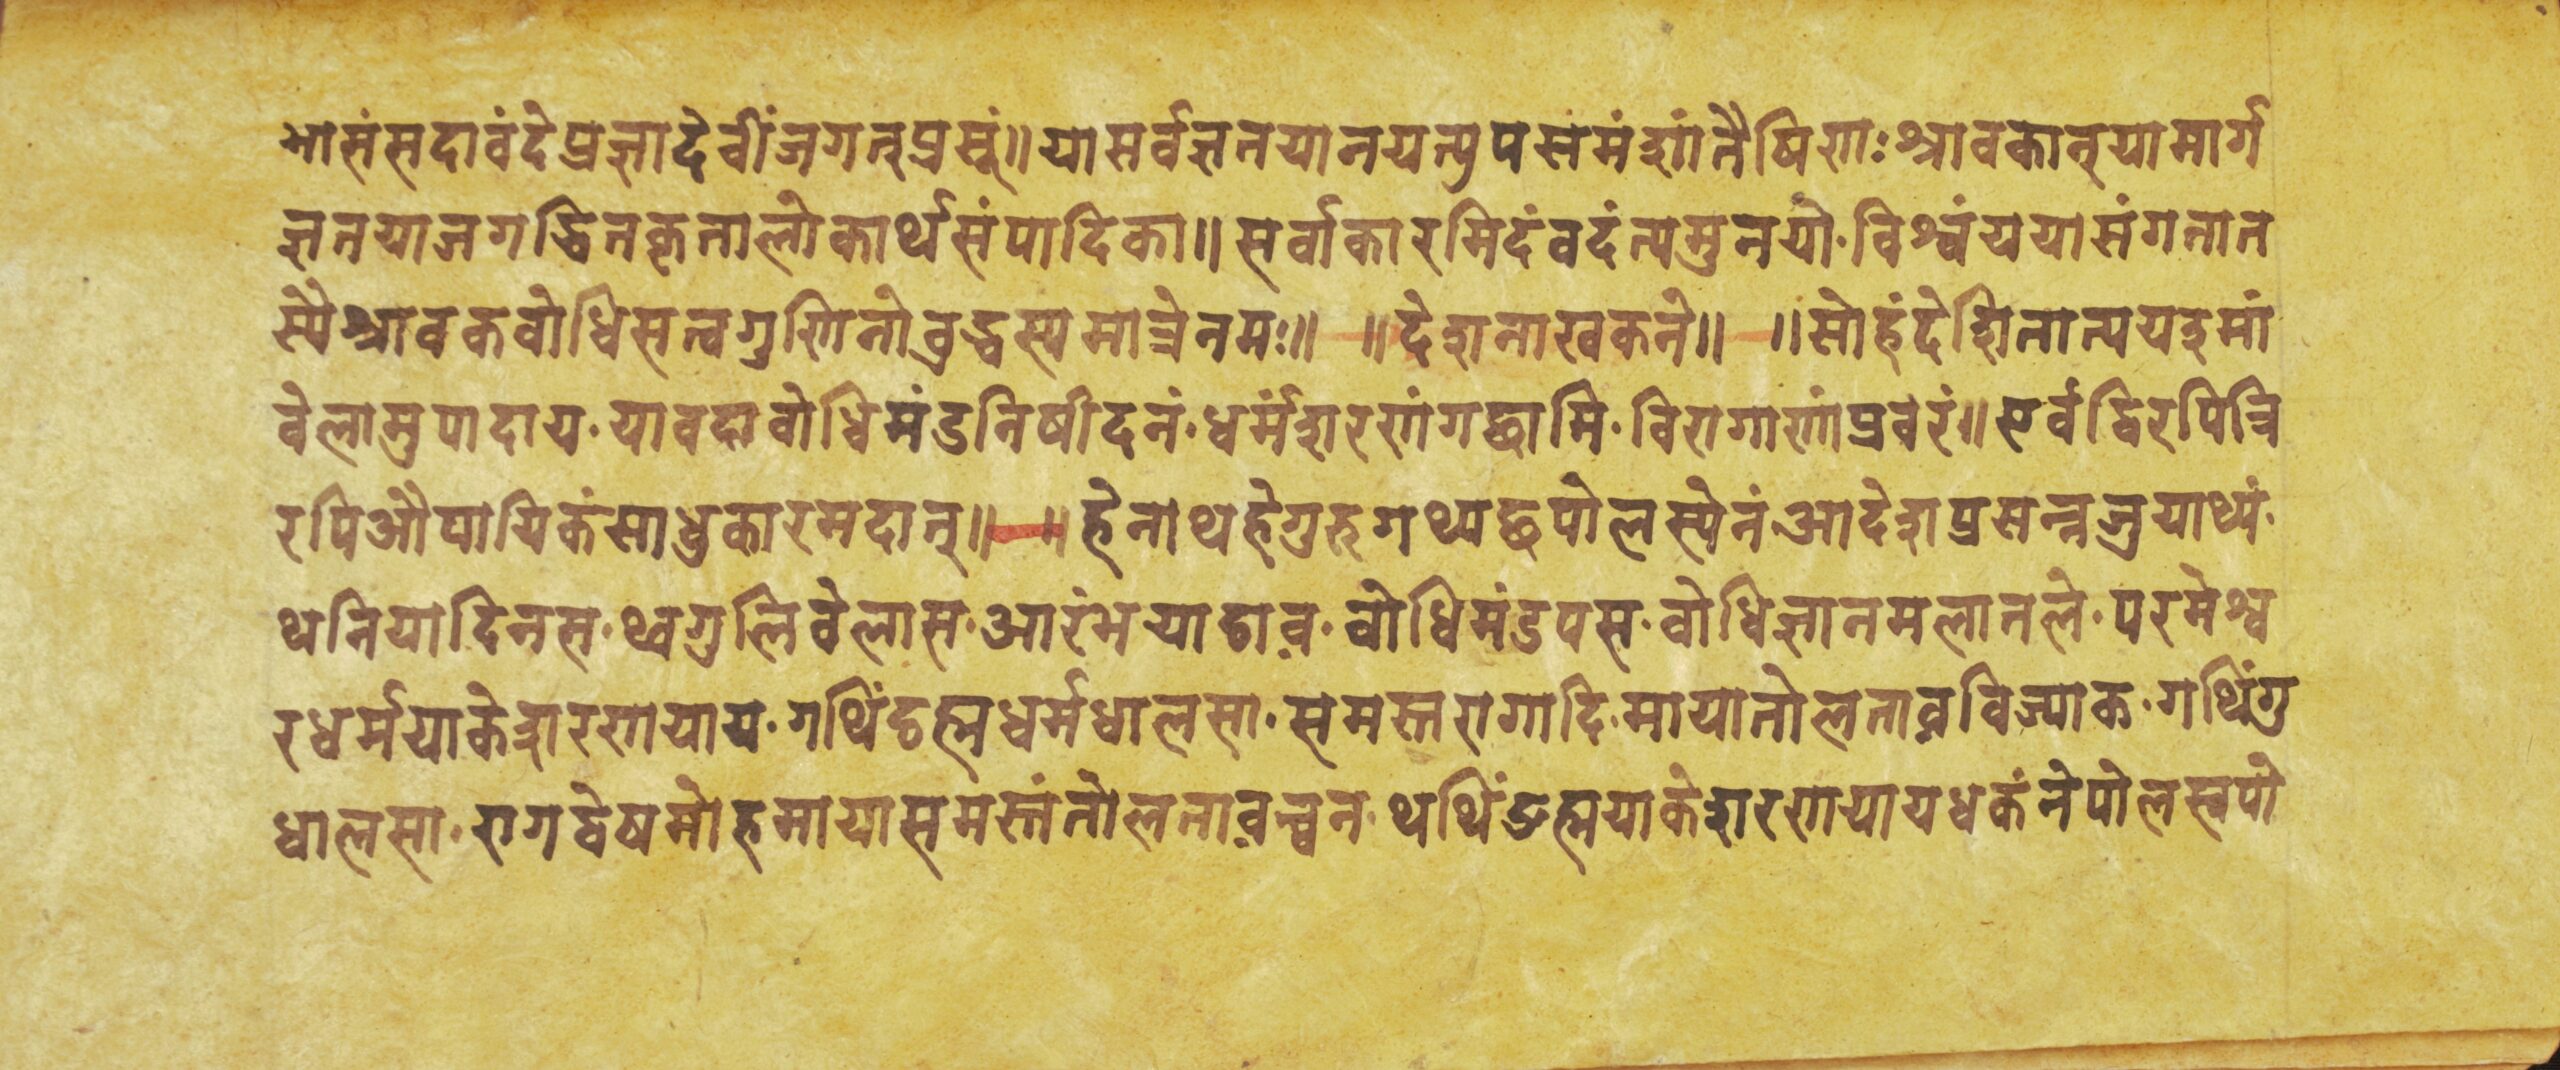 भासंसदावंदेप्रज्ञादेवींजगत्प्रसूं॥यासर्वज्ञतयानयत्युपसमंशांतैषिणाःश्रावकान्यामार्ग
ज्ञतयाजगद्धितकृतालोकार्थसंपादिका॥सर्वाकारमिदंवदंत्यमुनयो·विश्वंययासंगतात
स्यैश्रावकवोधिसत्वगुणितोवुद्धस्यमात्रेनमः॥ ॥देशनाखकने॥ ॥सोहंदेशितात्यय‍इमां
वेलामुपादाय·यावदावोधिमंडनिषीदनं·धर्मंशरणंगछामि·विरागाणांप्रवरं॥एवंद्विरपित्रि
रपिऔपायिकंसाधुकारमदात्॥ ॥हेनाथहेगुरुगथ्यछपोलस्येनंआदेशप्रसन्नजुयाथ्यं·
थनियादिनस·थ्वगुलिवेलास·आरंभयाङाव·वोधिमंडपस·वोधिज्ञानमलातले·परमेश्व
रधर्मयाकेशरणयाय·गथिंङह्मधर्मधालसा·समस्तरागादि·मायातोलतावविज्याक·गथिंगु
धालसा·रागद्वेषमोहमायासमस्तंतोलतावच्वन·थथिंङह्मयाकेशरणयायधकंनेपोलस्वपो